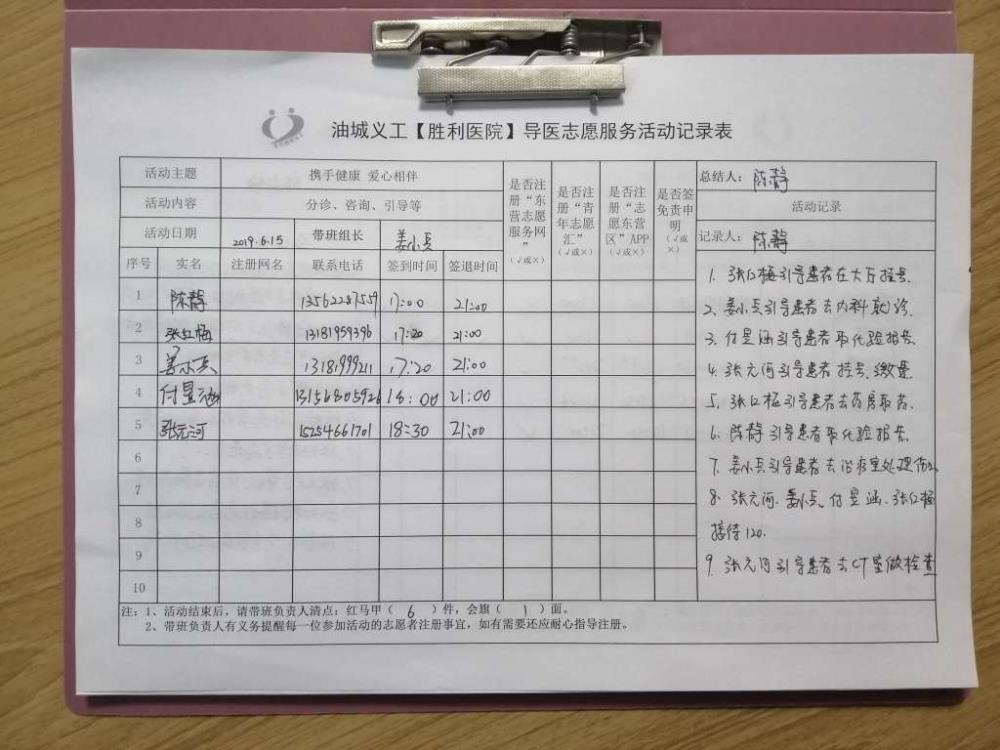 油城义工【胜利医院】导医志愿服务活动记录表
活动主题 携手健康 爱心相伴
活动内容 分诊、咨询、引导等
活动日期 2019.6.15 带班组长 姜小兵
序号 实名 注册网名 联系电话 签到时间 签退时间
是否注册“东营志愿服务网”(√或×)
是否注册“青年志愿汇”(√或×)
是否注册“志愿东营区”APP(√或×)
是否签免责申明(√或×)
1 陈静 13562287559 17:00 21:00
2 张红梅 13181959396 17:20 21:00
3 姜小兵 13181999211 17:20 21:00
4 付昱涵 13156805926 18:00 21:00
5 张元河 15254661701 18:30 21:00
6
7
8
9
10
总结人:陈静
活动记录
记录人:陈静
1. 张红梅引导患者在大厅挂号.
2. 姜小兵引导患者去内科就诊.
3. 付昱涵引导患者取化验报告.
4. 张元河引导患者挂号.缴费.
5. 张红梅引导患者去药房取药.
6. 陈静引导患者取化验报告.
7. 姜小兵引导患者去治疗室处理伤口
8. 张元河.姜小兵.付昱涵.张红梅
接待120.
9. 张元河引导患者去CT室做检查
注:1、活动结束后,请带班负责人清点:红马甲( 6 )件,会旗( 1 )面。
2、带班负责人有义务提醒每一位参加活动的志愿者注册事宜,如有需要还应耐心指导注册。